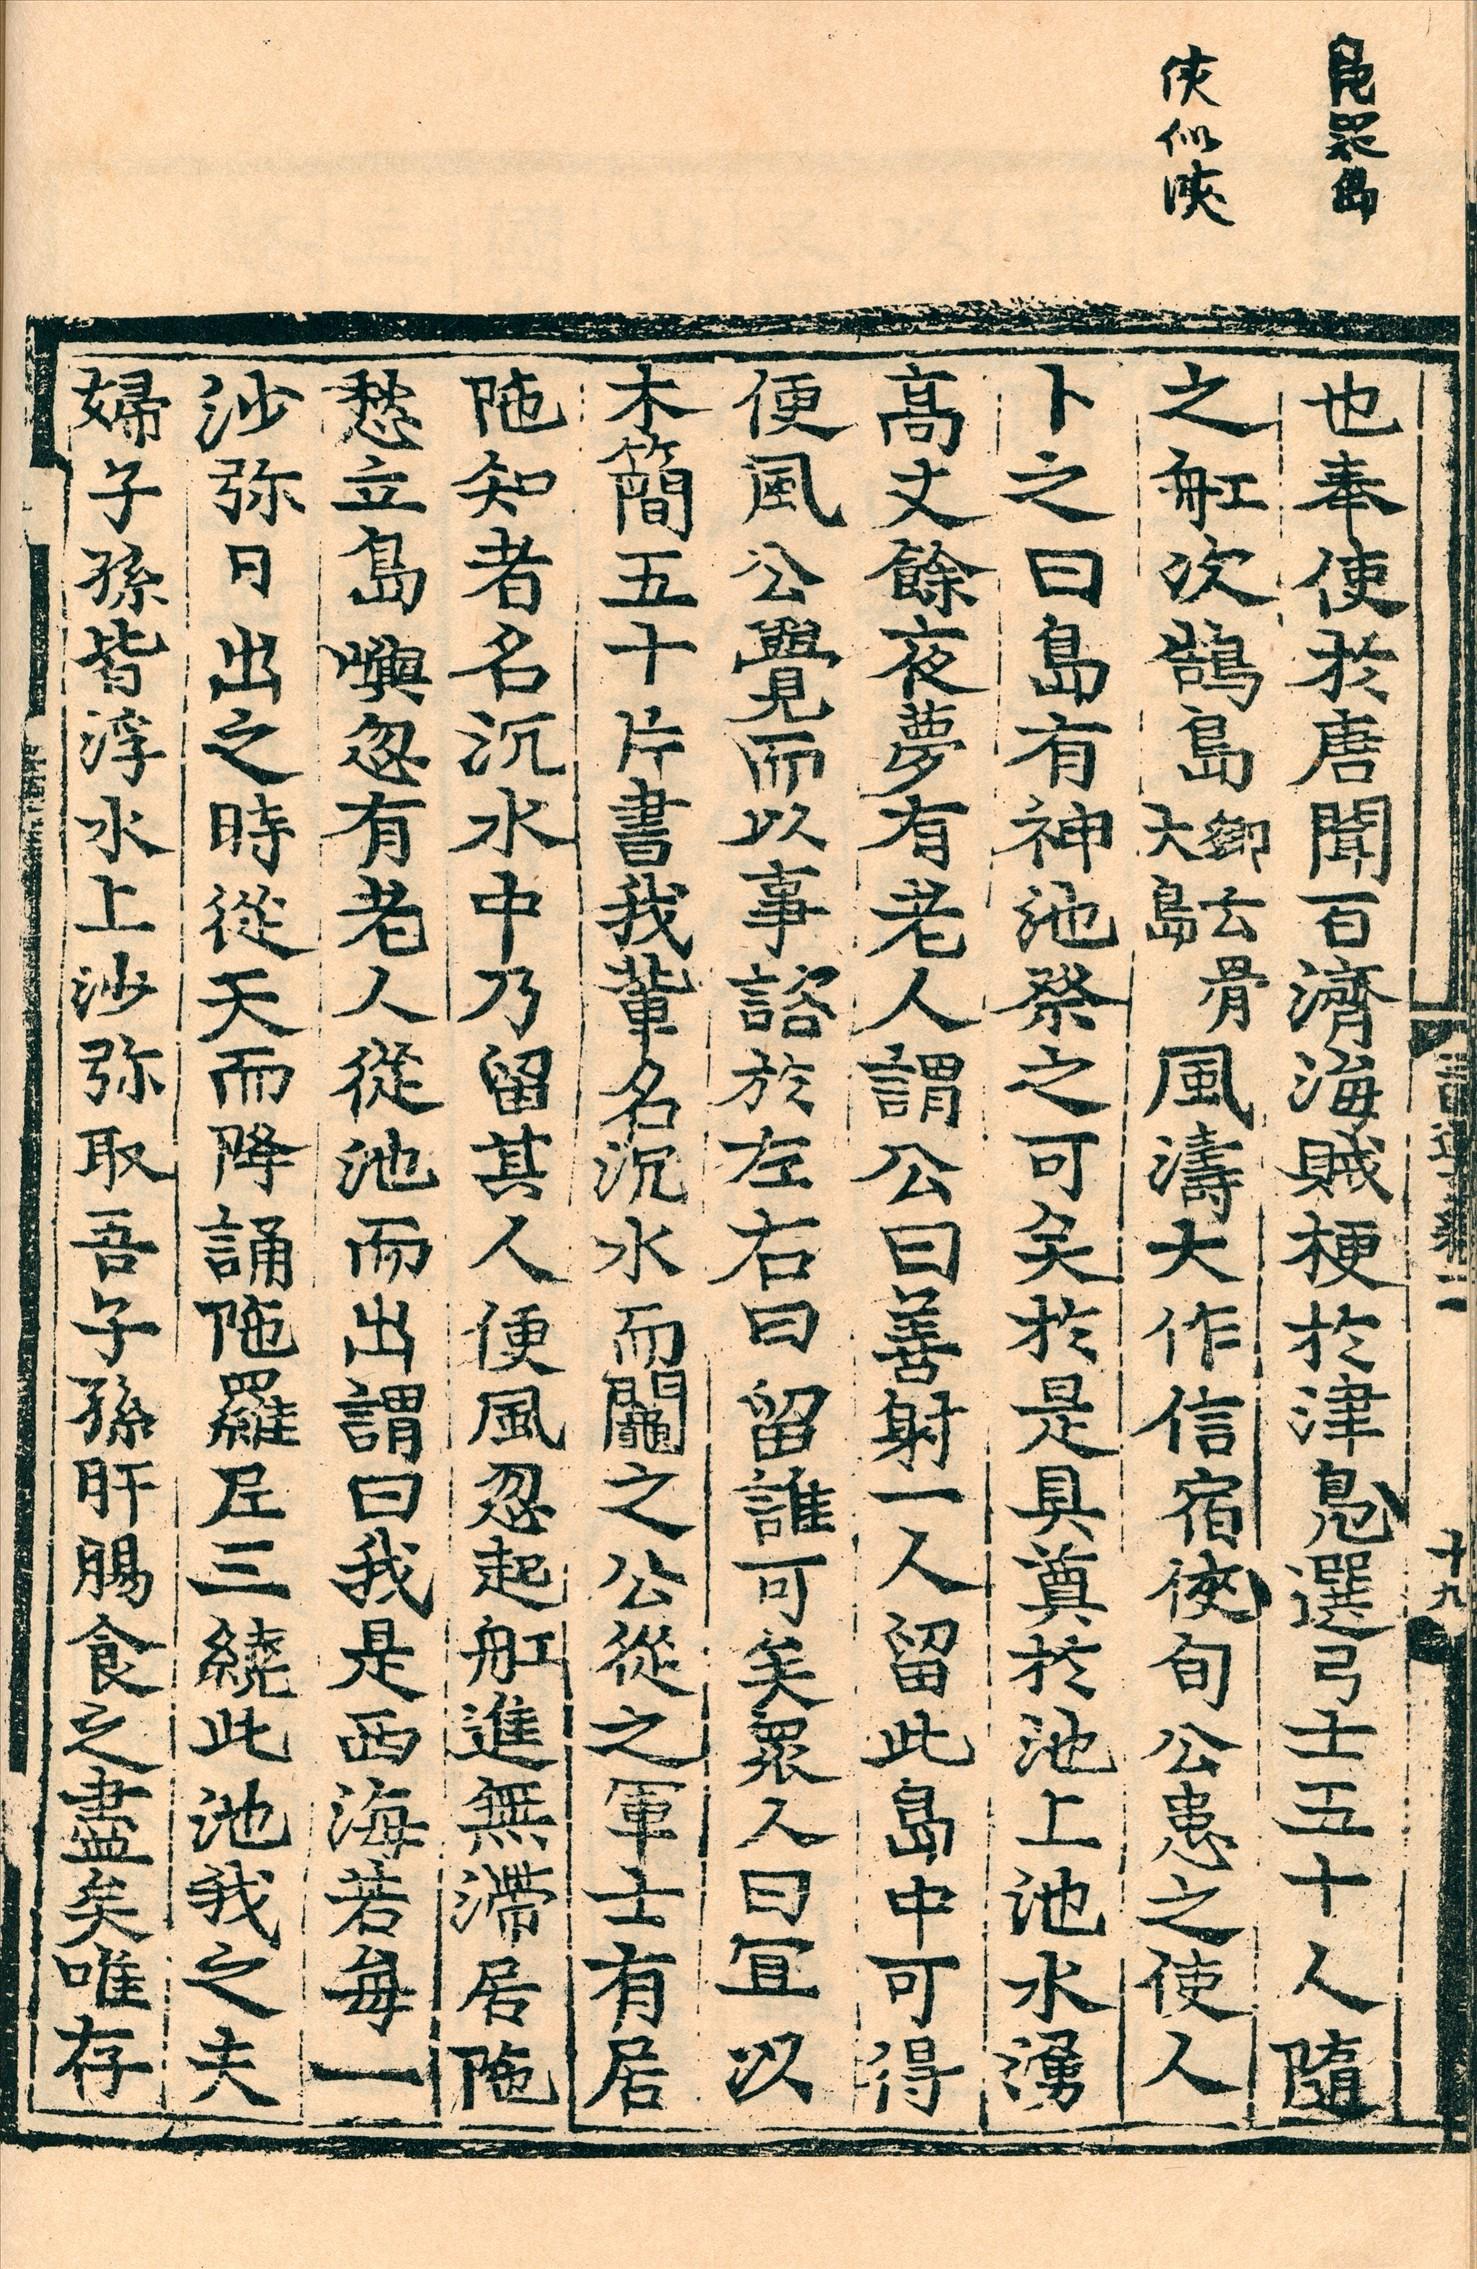 侠似浹
也奉使於唐聞百濟海賊梗於津鳧選弓士五十人隨
之舡次鵠島鄉云骨大島風濤大作信宿俠旬公患之使人
卜之曰島有神池祭之可矣於是具奠於池上池水湧
高丈餘夜夢有老人謂公曰善射一人留此島中可得
便風公覺而以事諮於左右曰留誰可矣衆人曰宜以
木簡五十片書我輩名沉水而鬮之公從之軍士有居
陁知者名沉水中乃留其人便風忽起舡進無滯居陁
愁立島嶼忽有老人從池而出謂曰我是西海若每一
沙弥日出之時從天而降誦陁羅尼三繞此池我之夫
婦子孫皆浮水上沙弥取吾子孫肝腸食之盡矣唯存
十九